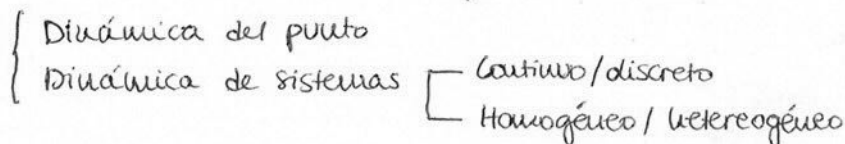 Dinámica del punto
Dinámica de sistemas
Continuo/discreto
Homogéneo/hetereogéneo